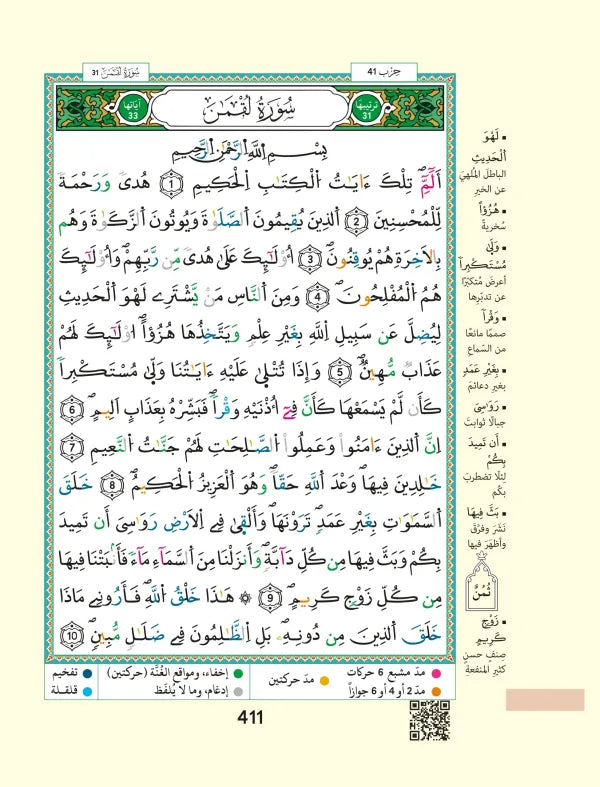 حِزْب 41
سُورَةُ لُقْمَٰنَ 31
تَرتيبها 31 سُورَةُ لُقْمَٰنَ آيَاتها 33
بِسْمِ اِللَّهِ اِلرَّحْمَٰنِ اِلرَّحِيمِ
أَلَٓمِّٓۖ تِلْكَ ءَايَٰتُ اُلْكِتَٰبِ اِلْحَكِيمِ 1 هُدىٗ وَرَحْمَةٗ
لِّلْمُحْسِنِينَ 2 اَلذِينَ يُقِيمُونَ اَلصَّلَوٰةَ وَيُوتُونَ اَلزَّكَوٰةَ وَهُم
بِالَاخِرَةِ هُمْ يُوقِنُونَۖ 3 أُوْلَٰٓئِكَ عَلَىٰ هُدىٗ مِّن رَّبِّهِمْۖ وَأُوْلَٰٓئِكَ
هُمُ اُلْمُفْلِحُونَۖ 4 وَمِنَ اَلنَّاسِ مَنْ يَّشْتَرِے لَهْوَ اَلْحَدِيثِ
لِيُضِلَّ عَن سَبِيلِ اِللَّهِ بِغَيْرِ عِلْمٖ وَيَتَّخِذُهَا هُزُؤاًۖ اُوْلَٰٓئِكَ لَهُمْ
عَذَابٞ مُّهِينٞۖ 5 وَإِذَا تُتْلَىٰ عَلَيْهِ ءَايَٰتُنَا وَلَّىٰ مُسْتَكْبِراٗ
كَأَن لَّمْ يَسْمَعْهَا كَأَنَّ فِےٓ أُذْنَيْهِ وَقْراٗۖ فَبَشِّرْهُ بِعَذَابٍ اَلِيمٍۖ 6
اِنَّ اَلذِينَ ءَامَنُواْ وَعَمِلُواْ اُلصَّٰلِحَٰتِ لَهُمْ جَنَّٰتُ اُلنَّعِيمِ 7
خَٰلِدِينَ فِيهَا وَعْدَ اَللَّهِ حَقّاٗۖ وَهُوَ اَلْعَزِيزُ اُلْحَكِيمُۖ 8 خَلَقَ
اَلسَّمَٰوَٰتِ بِغَيْرِ عَمَدٖ تَرَوْنَهَاۖ وَأَلْقَىٰ فِے اِلَارْضِ رَوَٰسِيَ أَن تَمِيدَ
بِكُمْ وَبَثَّ فِيهَا مِن كُلِّ دَآبَّةٖۖ وَأَنزَلْنَا مِنَ اَلسَّمَآءِ مَآءٗ فَأَنۢبَتْنَا فِيهَا
مِن كُلِّ زَوْجٖ كَرِيمٍۖ 9 ۞ هَٰذَا خَلْقُ اُللَّهِۖ فَأَرُونِے مَاذَا
خَلَقَ اَلذِينَ مِن دُونِهِۦۖ بَلِ اِلظَّٰلِمُونَ فِے ضَلَٰلٖ مُّبِينٖۖ 10
▪ لَهْوَ
اَلْحَدِيثِ
الباطلَ المُلْهِيَ
عن الخير
▪ هُزُؤاً
سُخريةً
▪ وَلَّىٰ
مُسْتَكْبِراٗ
أعرضَ مُتكبّرًا
عن تدبّرِها
▪ وَقْراٗ
صممًا مانعًا
من السّماعِ
▪ بِغَيْرِ عَمَدٖ
بغيرِ دعائمَ
▪ رَوَٰسِيَ
جبالًا ثوابتَ
▪ أَن تَمِيدَ
بِكُمْ
لئلّا تضطربَ
بكُم
▪ بَثَّ فِيهَا
نَشَرَ وفرَّقَ
وأظهَرَ فيها
ثُمُنٌ
▪ زَوْجٖ
كَرِيمٍ
صِنفٍ حسنٍ
كثيرِ المنفعةِ
مدّ مشبع 6 حركات
مدّ حركتين
إخفاء، ومواقع الغُنَّة (حركتين)
تفخيم
مدّ 2 أو 4 أو 6 جوازاً
إدغام، وما لا يُلفَظ
قلقلة
411